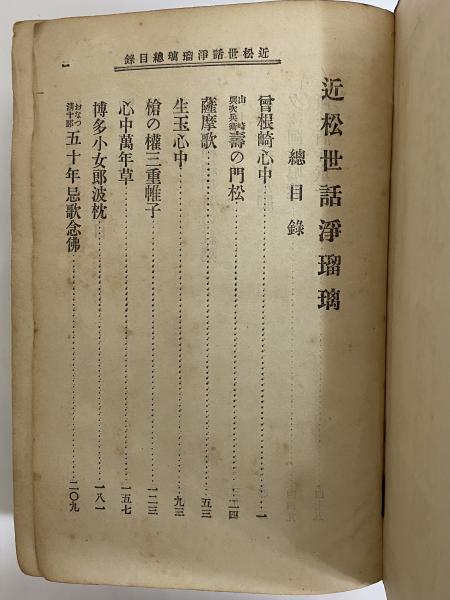 近松世話淨瑠璃總目錄
一
近松世話淨瑠璃
總目錄
曾根崎心中……一
山崎與次兵衞壽の門松……二四
薩摩歌……五三
生玉心中……九三
槍の權三重帷子……一二三
心中萬年草……一五七
博多小女郎波枕……一八一
おなつ淸十郎五十年忌歌念佛……二〇九